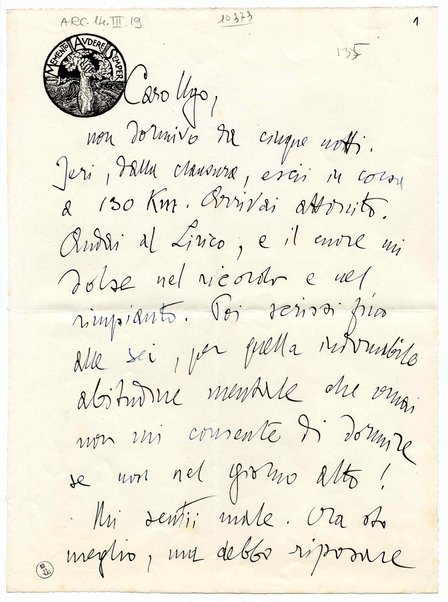 ARC. 14. III. 19
10373
1
135
MEMENTO AUDERE SEMPER
Caro Ugo,
non dormivo da cinque notti.
Jeri, dalla clausura, escii in corsa
a 130 Km. Arrivai attonito.
Andai al Lirico, e il cuore mi
dolse nel ricordo e nel
rimpianto. Poi scrissi fino
alle sei, per quella indomabile
abitudine mentale che omai
non mi consente di dormire
se non nel giorno alto!
Mi sentii male. Ora sto
meglio, ma debbo riposare